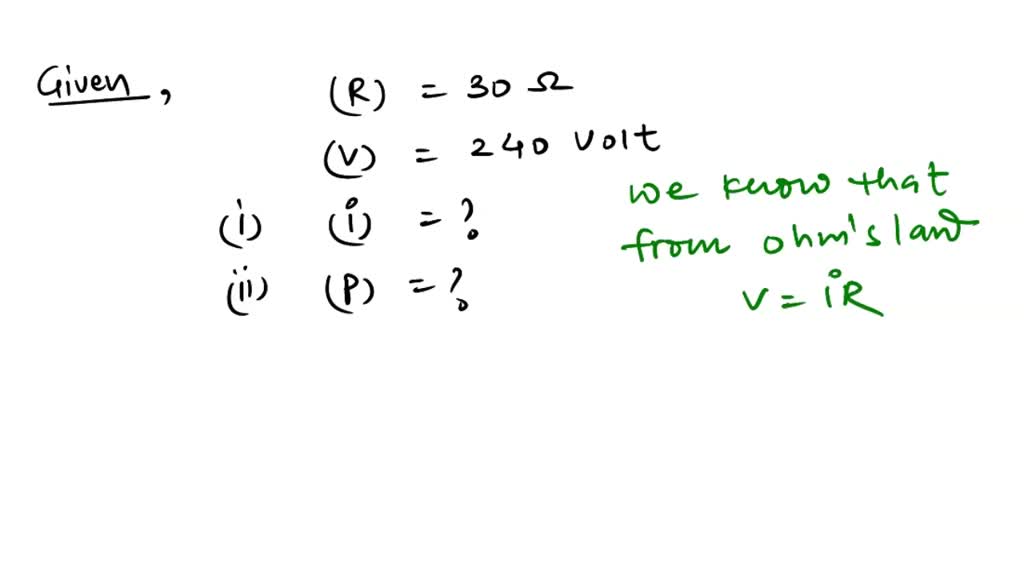 Given, (R) = 30 Ω
(V) = 240 volt
(i) (i) = ?
(ii) (P) = ?
we know that
from ohm's law
V = iR